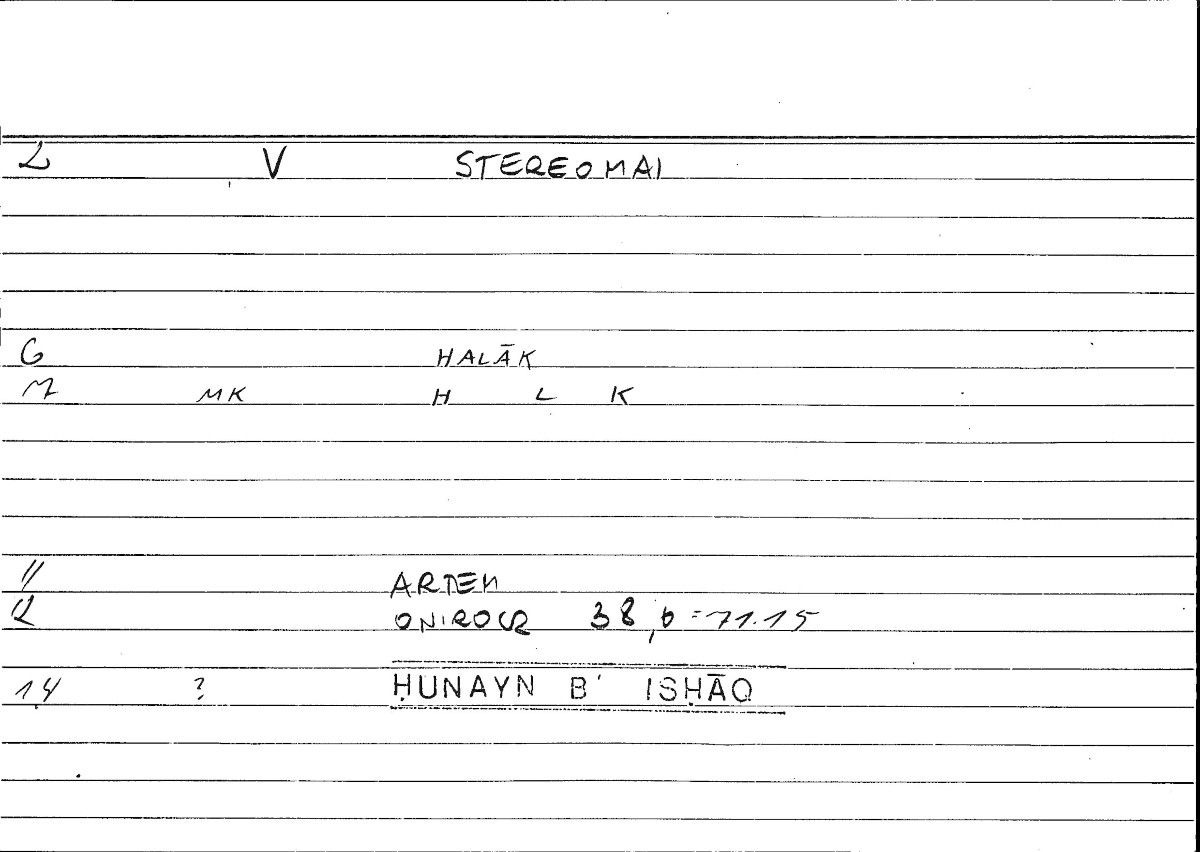 2 V STEREOMAI
6 HALĀK
7 MK H L K
11 ARTEM
12 ONIROCR 38,6=71.15
14 ? ḤUNAYN B' ISḤĀQ